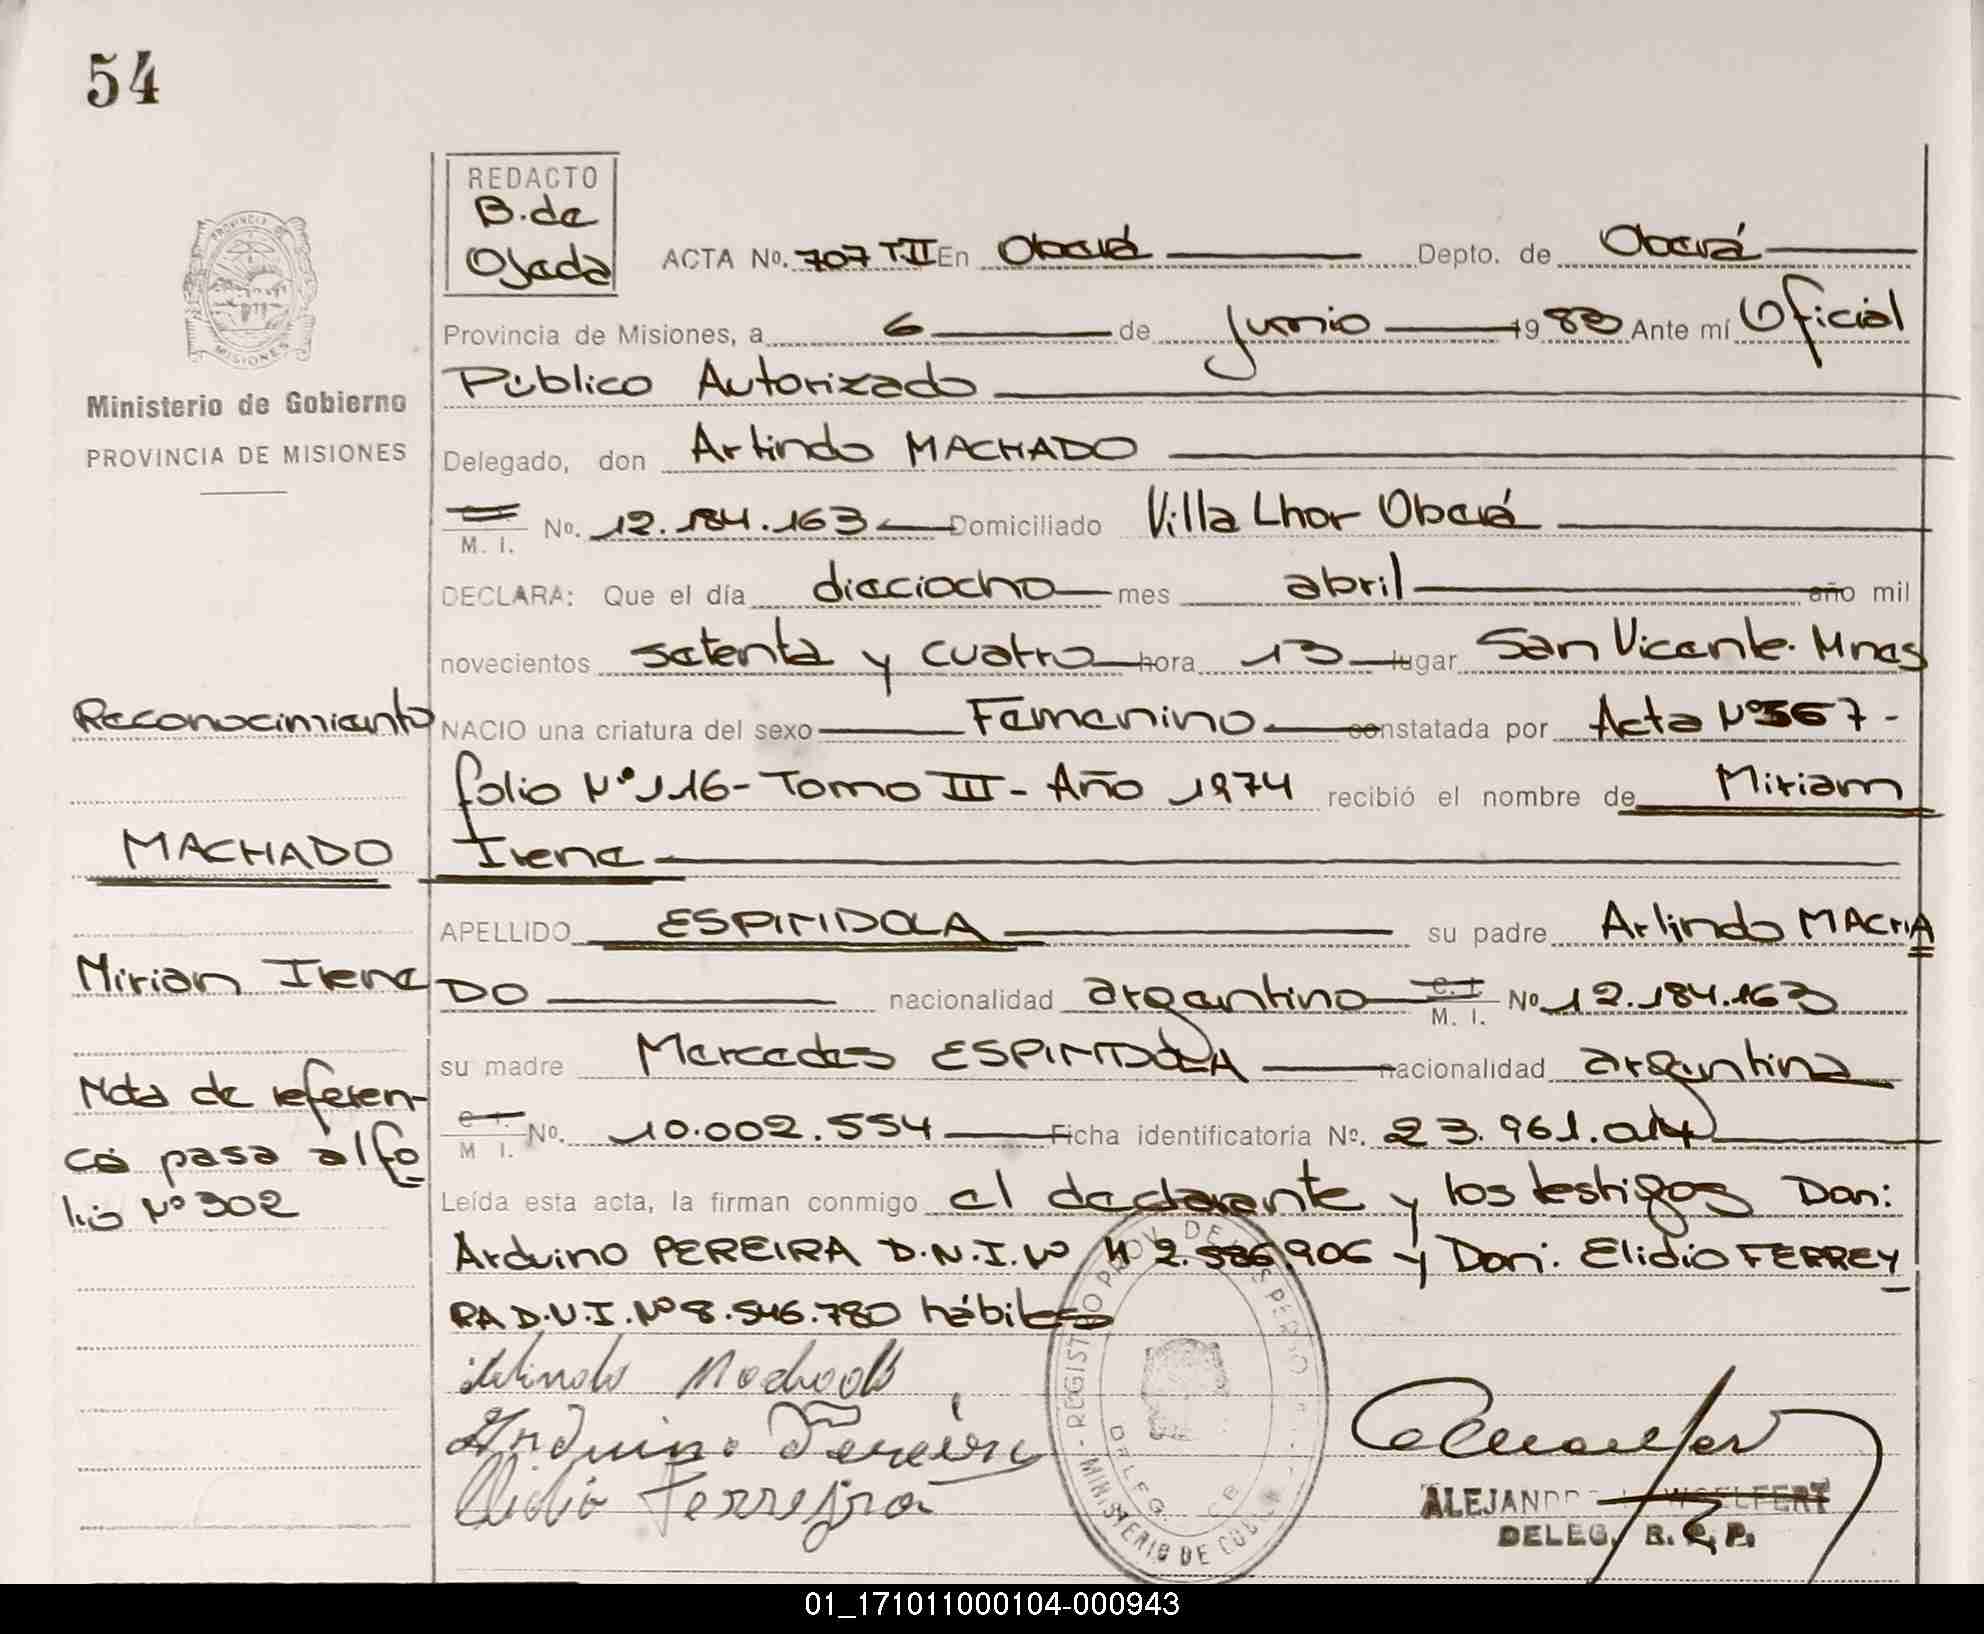 54
REDACTO
B. de
Ojeda
ACTA No. 707 T.II En Oberá Depto. de Oberá
Provincia de Misiones, a 6 de junio 1980 Ante mí Oficial
Público Autorizado
Delegado, don Arlindo MACHADO
M. I. No. 12.184.163 Domiciliado Villa Lhor Oberá
DECLARA: Que el día dieciocho mes abril año mil
novecientos setenta y cuatro hora 13 lugar San Vicente. Mnes
NACIO una criatura del sexo Femenino constatada por Acta Nº 567-
folio Nº 116- Tomo III- Año 1974 recibió el nombre de Miriam
Irene
APELLIDO ESPINDOLA su padre Arlindo MACHA
DO nacionalidad argentino C. I. M. I. No 12.184.163
su madre Mercedes ESPINDOLA nacionalidad argentina
C. I. M I. No. 10.002.554 Ficha identificatoria No. 23.961.014
Leída esta acta, la firman conmigo el declarante y los testigos Don:
Arduino PEREIRA D.N.I. Nº 2.586.906 y Don: Elidio FERREY
RA D.N.I. Nº 8.546.780 hábiles
Arlindo Machado
Arduino Pereira
Elidio Ferreyra
PROVINCIA DE
MISIONES
Ministerio de Gobierno
PROVINCIA DE MISIONES
Reconocimiento
MACHADO
Mirian Irene
Nota de referen-
cia pasa al fo
lio Nº 302
REGISTRO PROV. DE LAS PERSO
MINISTERIO DE
DELEG.
ALEJANDR WOELFERT
DELEG. R. C. P.
01_171011000104-000943